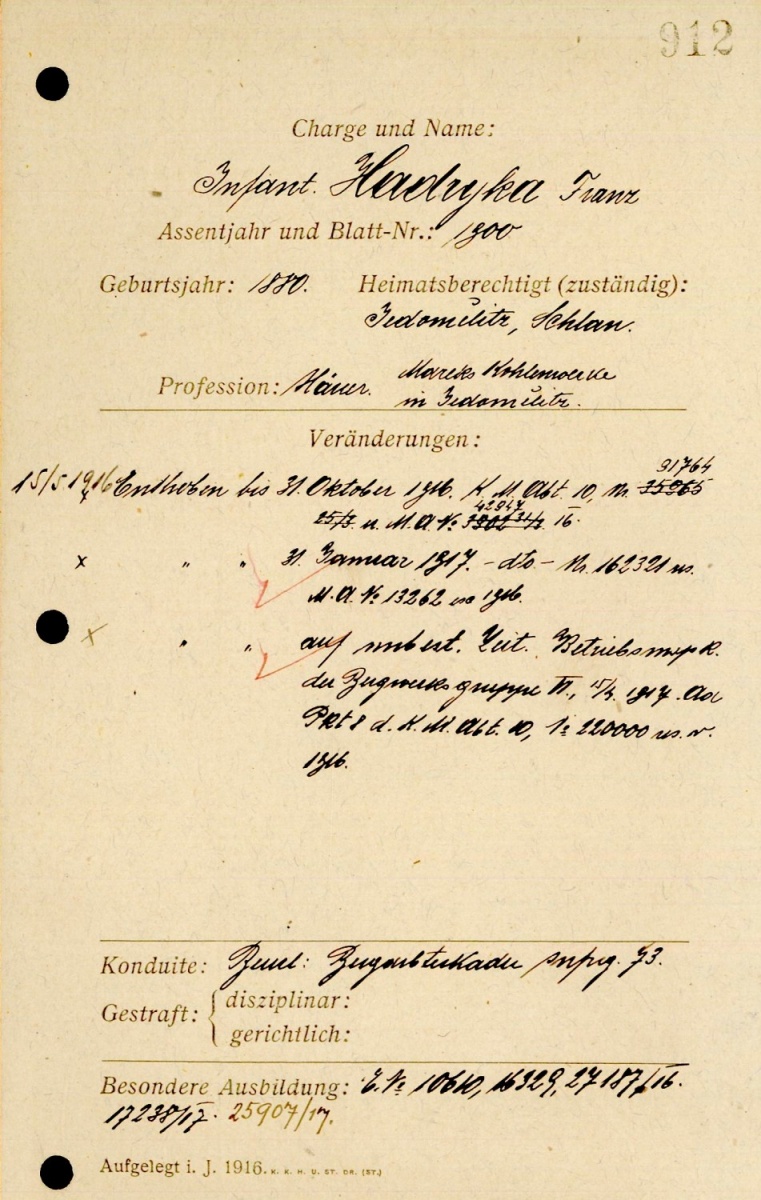 912
Charge und Name:
Infant. Hadryka Franz
Assentjahr und Blatt-Nr.: 1900
Geburtsjahr: 1880. Heimatsberechtigt (zuständig):
Jedomělitz, Schlan.
Profession: Häuer. Mareks Kohlenwerke
in Jedomělitz.
Veränderungen:
91764
15/5 1916 Enthoben bis 31. Oktober 1916. K. M. Abt. 10, Nr. 35965
42947
25/3 u. M.A. № 16.
x " " 31. Januar 1917. - dto - Nr. 162321 us.
M.A. № 13262 ex 1916.
x " " auf unbest. Zeit.
der gruppe VI, 1917. Ad
Pkt 8 d. K. M. Abt. 10, № 220000 us. v.
1916.
Konduite:
Gestraft: disziplinar:
gerichtlich:
Besondere Ausbildung: E. № 10610, 16329, 27187/16.
17238/17. 25907/17.
Aufgelegt i. J. 1916. K. K. H. U. ST. DR. (ST.)